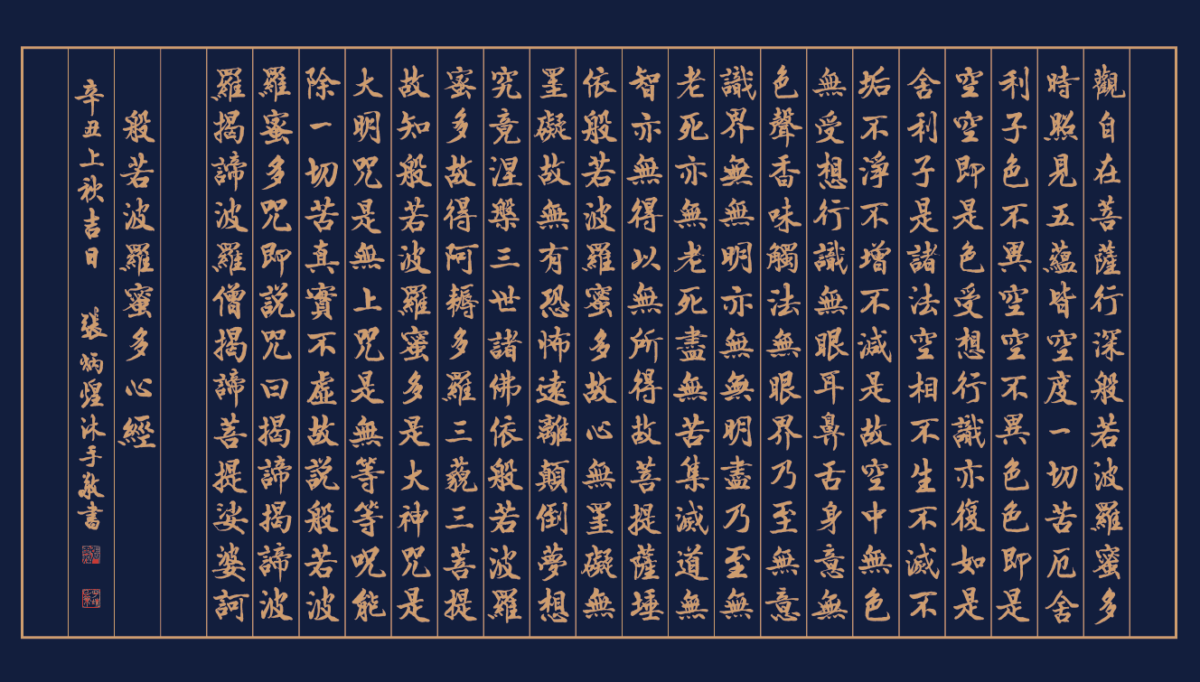 觀自在菩薩行深般若波羅蜜多
時照見五蘊皆空度一切苦厄舍
利子色不異空空不異色色即是
空空即是色受想行識亦復如是
舍利子是諸法空相不生不滅不
垢不淨不增不減是故空中無色
無受想行識無眼耳鼻舌身意無
色聲香味觸法無眼界乃至無意
識界無無明亦無無明盡乃至無
老死亦無老死盡無苦集滅道無
智亦無得以無所得故菩提薩埵
依般若波羅蜜多故心無罣礙無
罣礙故無有恐怖遠離顛倒夢想
究竟涅槃三世諸佛依般若波羅
蜜多故得阿耨多羅三藐三菩提
故知般若波羅蜜多是大神咒是
大明咒是無上咒是無等等呪能
除一切苦真實不虛故説般若波
羅蜜多咒即説咒曰揭諦揭諦波
羅揭諦波羅僧揭諦菩提娑婆訶
般若波羅蜜多心經
辛丑上秋吉日 張炳煌沐手敬書